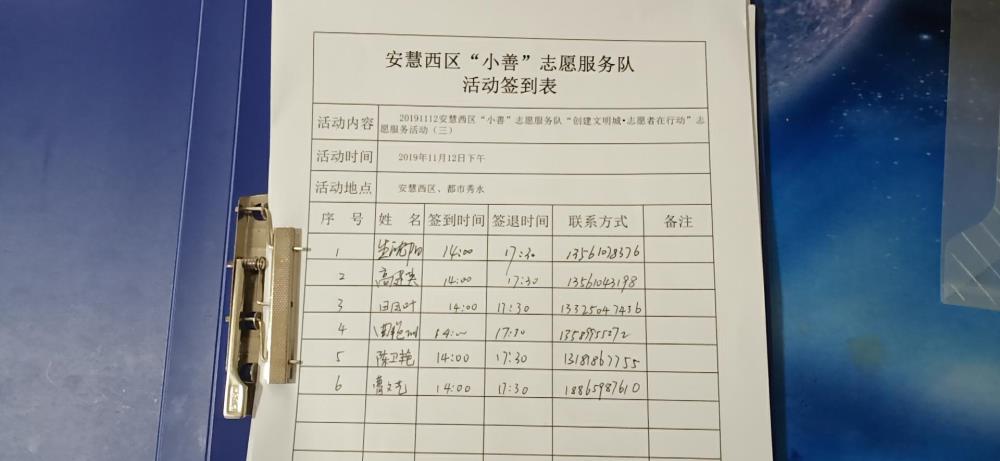 安慧西区“小善”志愿服务队
活动签到表
活动内容 20191112安慧西区“小善”志愿服务队“创建文明城•志愿者在行动”志
愿服务活动（三）
活动时间 2019年11月12日下午
活动地点 安慧西区、都市秀水
序 号 姓 名 签到时间 签退时间 联系方式 备注
1 14:00 17:30 13561078376
2 14:00 17:30 13561043198
3 14:00 17:30 13325047436
4 17:30 13589955272
5 陈卫艳 14:00 17:30 13181867755
6 曹文志 14:00 17:30 18865987610